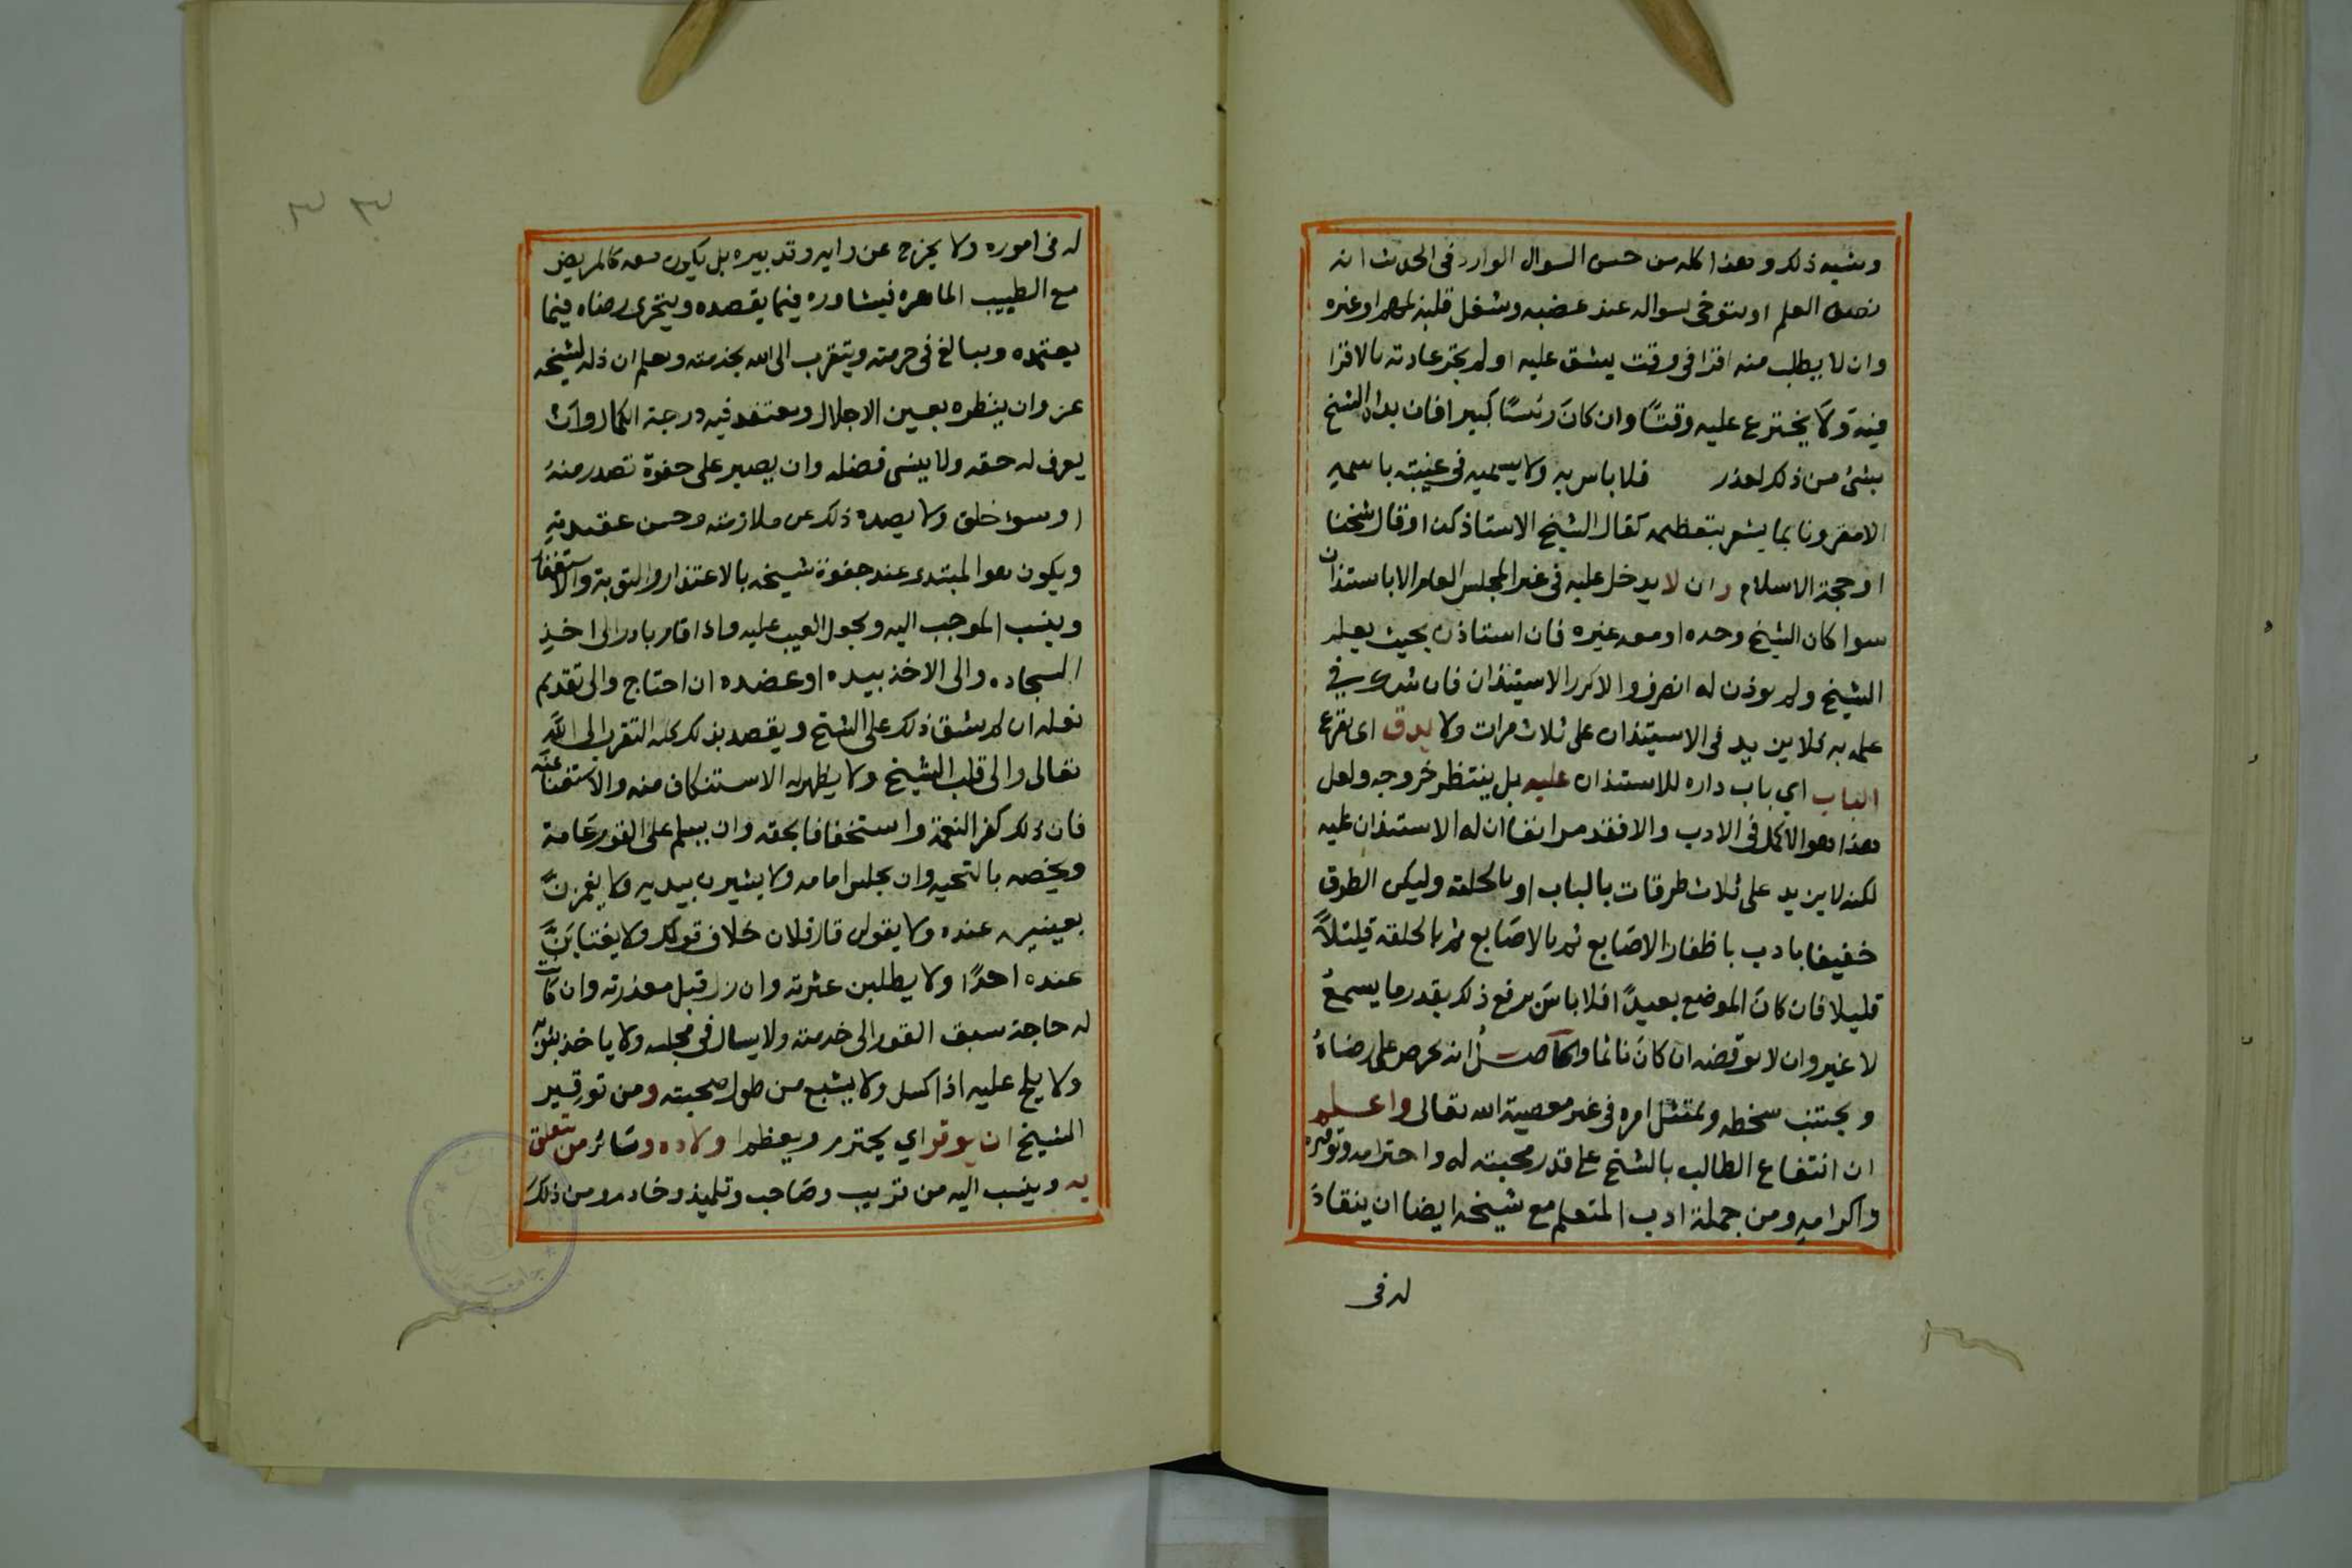 وشبه ذلك وهذا كله من حسن السوال الوارد فى الحديث انه
نصف العلم او يتوخى بسواله عند غضبه وشغل قلبه لهم او غيره
وان لا يطلب منه اقرا فى وقت يشق عليه او لم تجر عادته بالاقرا
فيه ولا يخترع عليه وقتًا وان كان رئسًا كبيرا فان بداه الشيخ
بشئ من ذلك لعذر فلا باس به ولا يسميه فى غيبته باسمه
الا مقرونا بما يشعر بتعظيمه كقال الشيخ الاستاذ كذا وقال شيخنا
او حجة الاسلام وان لا يدخل عليه فى غير المجلس العام الا باستئذان
سوا كان الشيخ وحده او معه غيره فان استاذن بحيث يعلم
الشيخ ولم يوذن له انصرف والا كرر الاستيذان فان شك في
علمه به فلا يزيد فى الاستيذان على ثلاث مرات ولا يدق اى يقرع
الباب اي باب داره للاستذان عليه بل ينتظر خروجه ولعل
هذا هو الاكمل فى الادب والا فقد مر انفا ان له الاستذان عليه
لكنه لا يزيد على ثلاث طرقات بالباب او بالحلقة وليكن الطرق
خفيفا بادب باظفار الاصابع ثم بالاصابع ثم بالحلقة قليلاً
قليلا فان كان الموضع بعيدًا فلا باس برفع ذلك بقدر ما يسمع
لا غير وان لا يوقضه ان كان نائما والحاصل انه يحرص على رضاه
ويجتنب سخطه ويمتثل امره فى غير معصية الله تعالى واعلم
ان انتفاع الطالب بالشيخ على قدر محبته له واحترامه وتوقيره
واكرامه ومن جملة ادب المتعلم مع شيخه ايضا ان ينقاد
له فى
٣٣
له فى اموره ولا يخرج عن رايه وتدبيره بل يكون معه كالمريض
مع الطبيب الماهر فيشاوره فيما يقصده ويتحرى رضاه فيما
يعتمده ويبالغ فى حرمته ويتقرب الى الله بخدمته ويعلم ان ذله لشيخه
عز وان ينظره بعين الاجلال ويعتقد فيه درجة الكمال وان
يعرف له حقه ولا ينسى فضله وان يصبر على جفوة تصدر منه
او سوء خلق ولا يصده ذلك عن ملازمته وحسن عقيدته
ويكون هو المبتدى عند جفوة شيخه بالاعتذار والتوبة والاستغفار
وينسب الموجب اليه ويجعل العيب عليه واذا قام بادر الى اخذ
السجاده والى الاخذ بيده او عضده ان احتاج والى تقديم
نعله ان لم يشق ذلك على الشيخ ويقصد بذلك كله التقرب الى الله
تعالى والى قلب الشيخ ولا يظهر له الاستنكاف منه والاستغناء عنه
فان ذلك كفر النعمة واستخفافا بحقه وان يسلم على القوم عامة
ويخصه بالتحيه وان يجلس امامه ولا يشيرن بيديه ولا يغمزن
بعينيه عنده ولا يقول قال فلان خلاف قولك ولا يغتابن
عنده احدًا ولا يطلبن عثرته وان زل قبل معذرته وان كانت
له حاجة سبق القوم الى خدمته ولا يسال فى مجلسه ولا ياخذ بثوبه
ولا يلح عليه اذا كسل ولا يشبع من طول صحبته ومن توقير
الشيخ ان يوقر اي يحترم ويعظم اولاده وسائر من تتعلق
به وينسب اليه من قريب وصاحب وتلميذ وخادم ومن ذلك